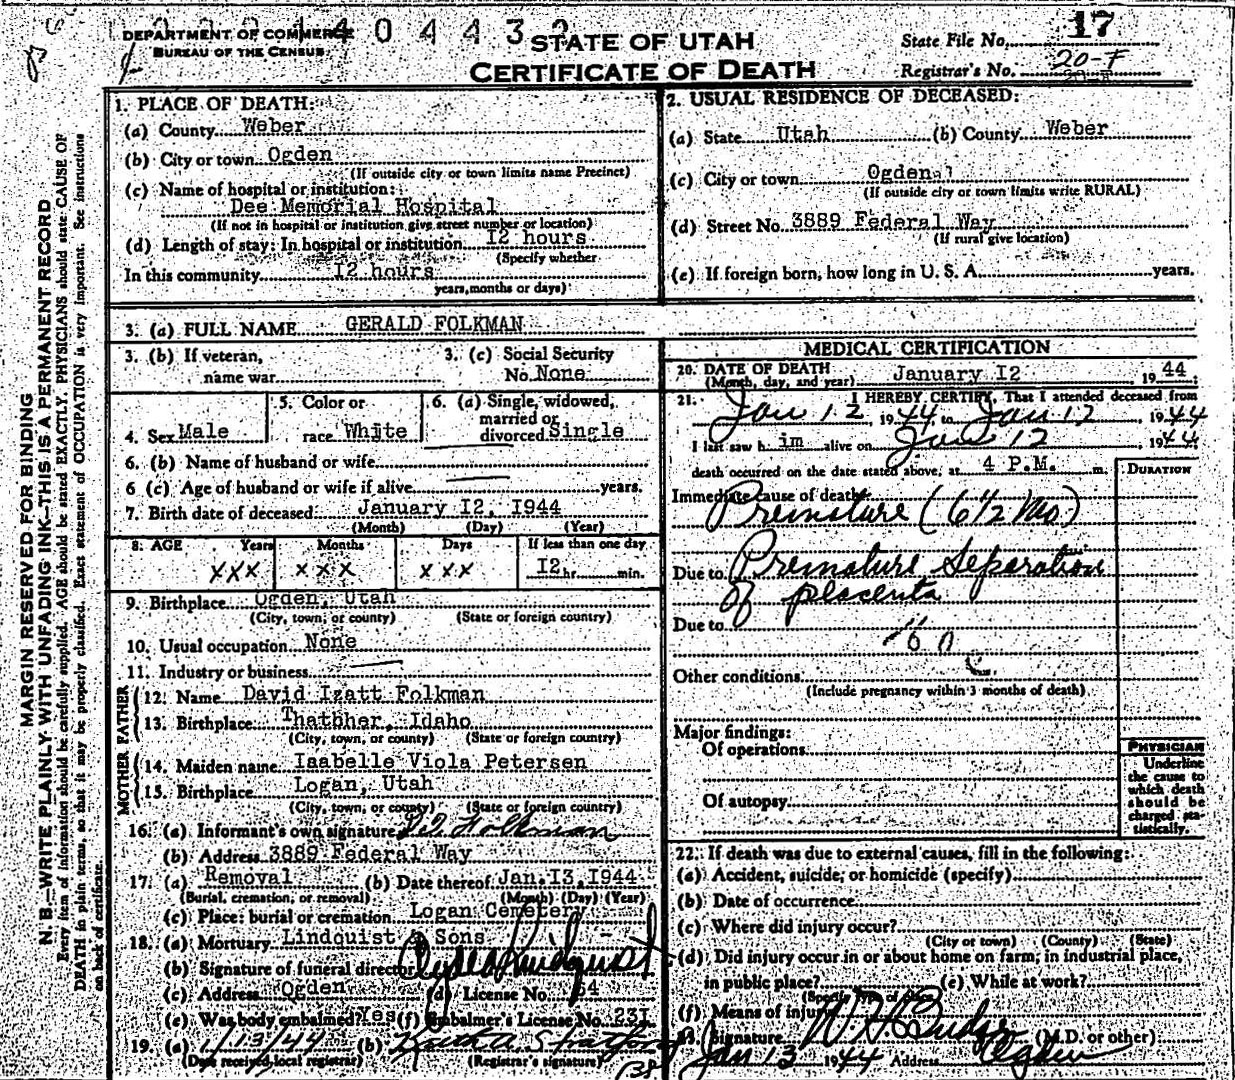 DEPARTMENT OF COMMERCE
BUREAU OF THE CENSUS
404432
STATE OF UTAH
CERTIFICATE OF DEATH
State File No. 17
Registrar's No. 20-F
MARGIN RESERVED FOR BINDING
N. B.—WRITE PLAINLY WITH UNFADING INK—THIS IS A PERMANENT RECORD
Every item of information should be carefully supplied. AGE should be stated EXACTLY. PHYSICIANS should state CAUSE OF
DEATH in plain terms, so that it may be properly classified. Exact statement of OCCUPATION is very important. See instructions
on back of certificate.
1. PLACE OF DEATH:
(a) County Weber
(b) City or town Ogden
(If outside city or town limits name Precinct)
(c) Name of hospital or institution:
Dee Memorial Hospital
(If not in hospital or institution give street number or location)
(d) Length of stay: In hospital or institution 12 hours
(Specify whether
In this community 12 hours
years, months or days)
2. USUAL RESIDENCE OF DECEASED:
(a) State Utah (b) County Weber
(c) City or town Ogden
(If outside city or town limits write RURAL)
(d) Street No. 3889 Federal Way
(If rural give location)
(e) If foreign born, how long in U. S. A. years.
3. (a) FULL NAME GERALD FOLKMAN
3. (b) If veteran, name war
3. (c) Social Security No. None
4. Sex Male
5. Color or race White
6. (a) Single, widowed, married or divorced Single
6. (b) Name of husband or wife
6 (c) Age of husband or wife if alive years.
7. Birth date of deceased January 12, 1944
(Month) (Day) (Year)
8. AGE Years Months Days If less than one day
XXX XXX XXX 12 hr. min.
9. Birthplace Ogden, Utah
(City, town, or county) (State or foreign country)
10. Usual occupation None
11. Industry or business
FATHER
12. Name David Izatt Folkman
13. Birthplace Thatbher, Idaho
(City, town, or county) (State or foreign country)
MOTHER
14. Maiden name Isabelle Viola Petersen
15. Birthplace Logan, Utah
(City, town, or county) (State or foreign country)
16. (a) Informant's own signature Folkman
(b) Address 3889 Federal Way
17. (a) Removal (b) Date thereof Jan. 13, 1944
(Burial, cremation, or removal) (Month) (Day) (Year)
(c) Place: burial or cremation Logan Cemetery
18. (a) Mortuary Lindquist & Sons
(b) Signature of funeral director Clyde Lindquist
(c) Address Ogden (d) License No. 64
(e) Was body embalmed? Yes (f) Embalmer's License No. 231
19. (a) 1/13/44 (b)
(Date received local registrar) (Registrar's signature)
138
MEDICAL CERTIFICATION
20. DATE OF DEATH
(Month, day, and year) January 12, 1944
21. I HEREBY CERTIFY, That I attended deceased from
Jan 12, 1944 to Jan 12, 1944
I last saw h im alive on Jan 12 1944
death occurred on the date stated above, at 4 P.M. m.
DURATION
Immediate cause of death
Premature (6 1/2 Mo)
Due to Premature Separation
of placenta
Due to
Other conditions
(Include pregnancy within 3 months of death)
Major findings:
Of operations
Of autopsy
PHYSICIAN
Underline
the cause to
which death
should be
charged sta-
tistically.
22. If death was due to external causes, fill in the following:
(a) Accident, suicide, or homicide (specify)
(b) Date of occurrence
(c) Where did injury occur?
(City or town) (County) (State)
(d) Did injury occur in or about home on farm, in industrial place,
in public place? (e) While at work?
(Specify type of place)
(f) Means of injury
23. Signature (M.D. or other)
Jan 13 1944 Address Ogden